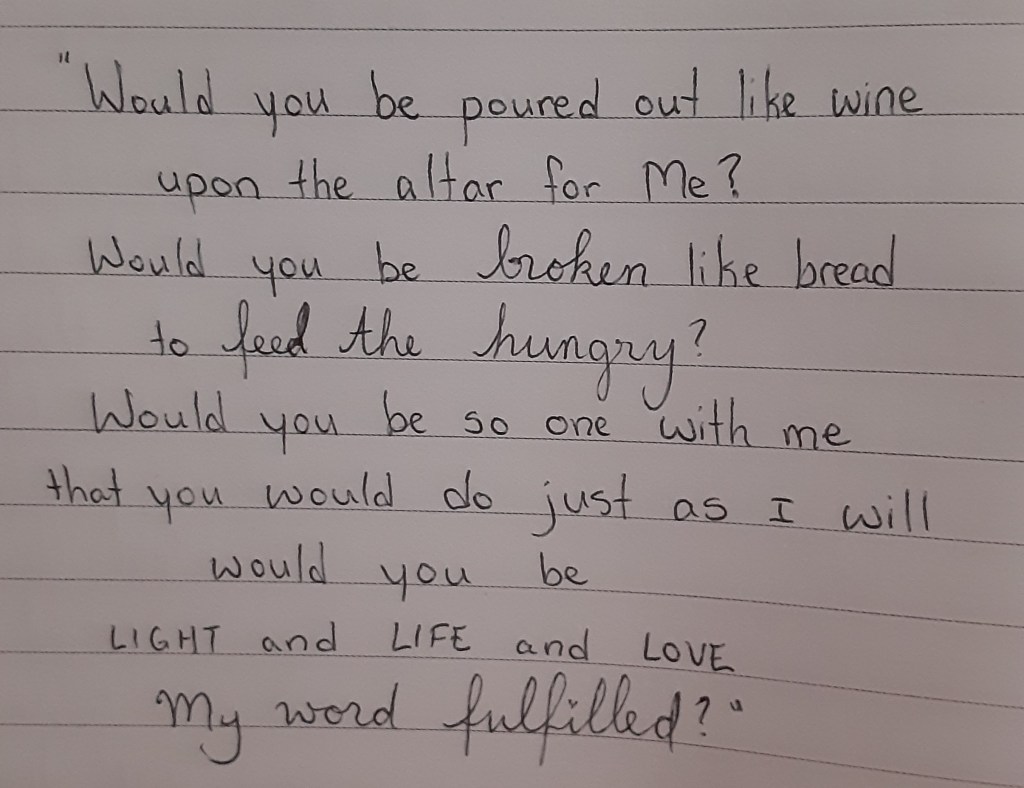 "Would you be poured out like wine
upon the altar for Me?
Would you be broken like bread
to feed the hungry?
Would you be so one with me
that you would do just as I will
would you be
LIGHT and LIFE and LOVE
My word fulfilled?"